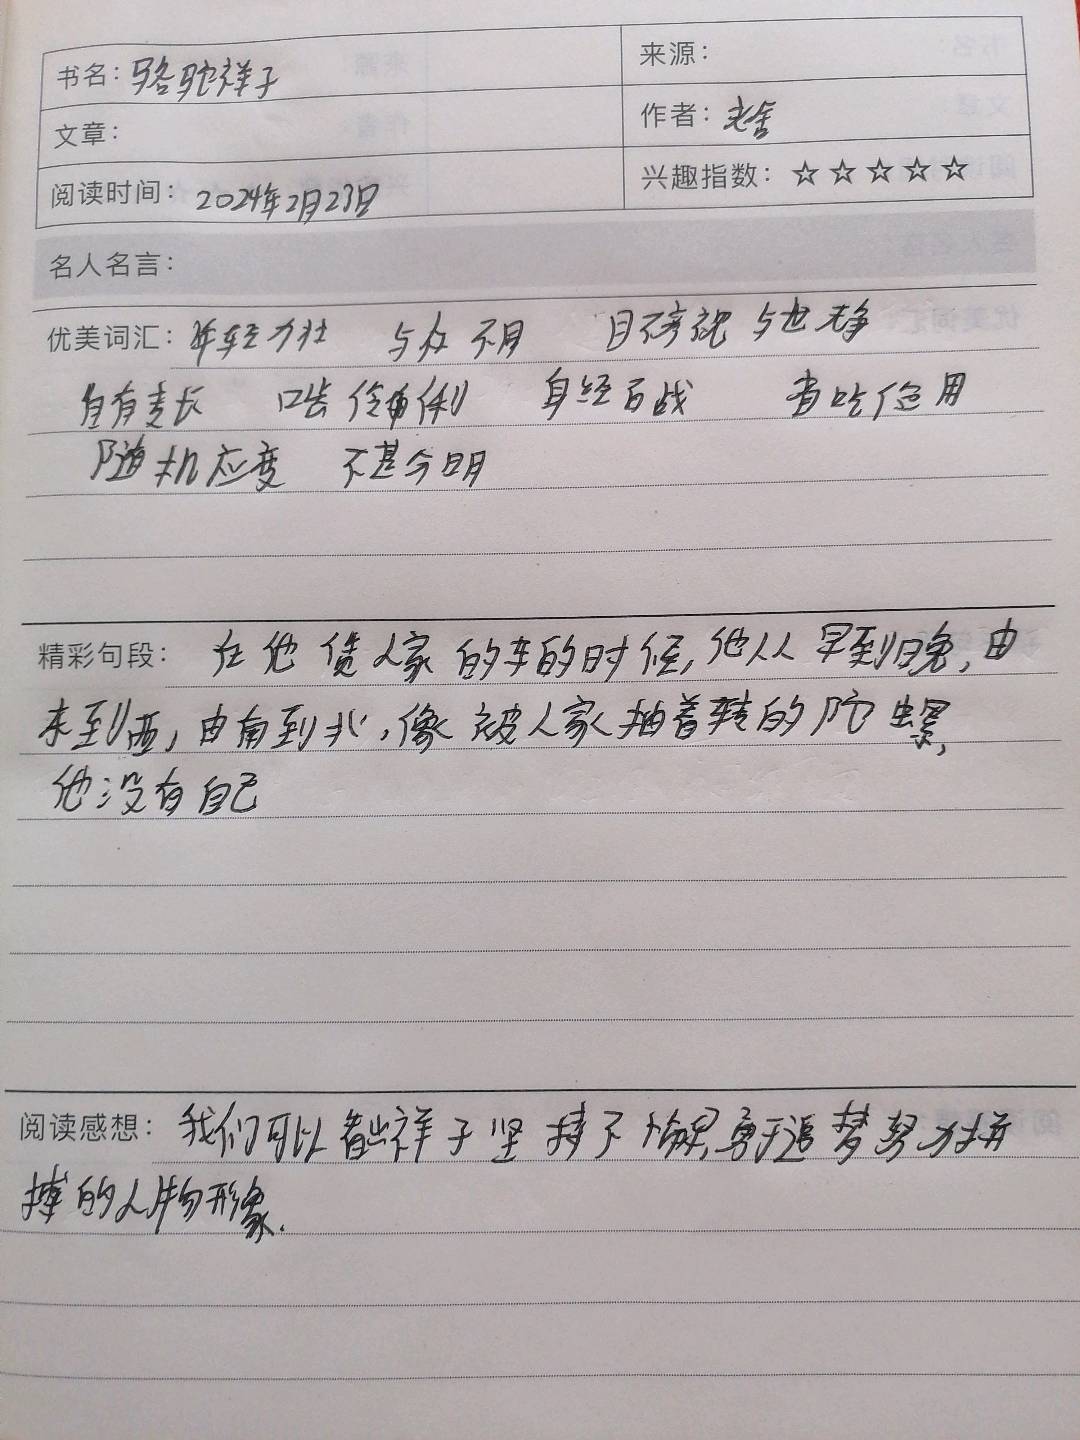 书名：骆驼祥子
来源：
文章：
作者：老舍
阅读时间：2024年2月23日
兴趣指数：☆☆☆☆☆
名人名言：
优美词汇：年轻力壮 与众不同 目不旁视 与世无争
自有专长 口齿伶俐 身经百战 省吃俭用
随机应变 不甚分明
精彩句段：在他赁人家的车的时候，他从早到晚，由
东到西，由南到北，像被人家抽着转的陀螺，
他没有自己
阅读感想：我们可以看出祥子坚持不懈，勇于追梦努力拼
搏的人物形象.